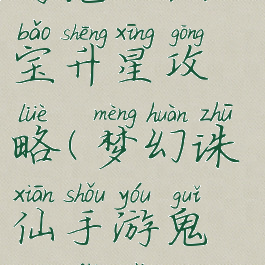 bǎo shēng xīng gōng
宝升星攻
lüè mèng huàn zhū
略(梦幻诛
xiān shǒu yóu guǐ
仙手游鬼